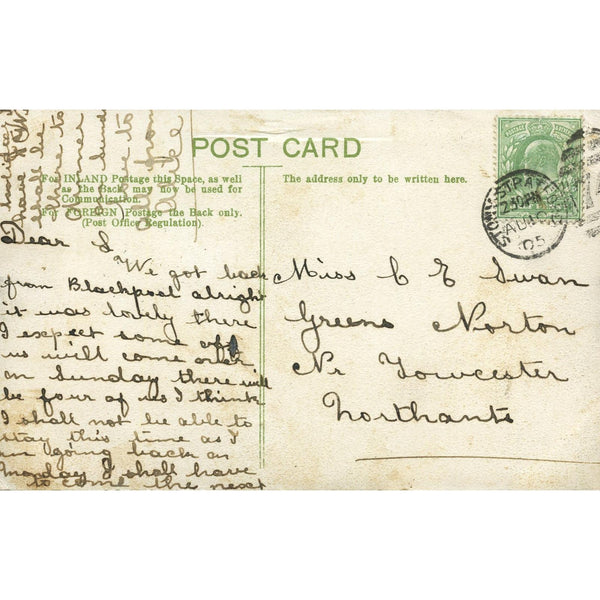 POST CARD
For INLAND Postage this Space, as well
as the Back may now be used for
Communication.
For FOREIGN Postage the Back only.
(Post Office Regulation).
The address only to be written here.
STONY STRATFORD
AU
05
Dear
We got back
from Blackpool alright
it was lovely there
I expect some of
us will come over
on Sunday there will
be four of us I think
I shall not be able to
stay this time as I
am going back on
monday I shall have
to come the next
holiday I
have
shall be
alone to
dinner
love to
all from
Miss C E Swan
Greens Norton
Nr Towcester
Northants